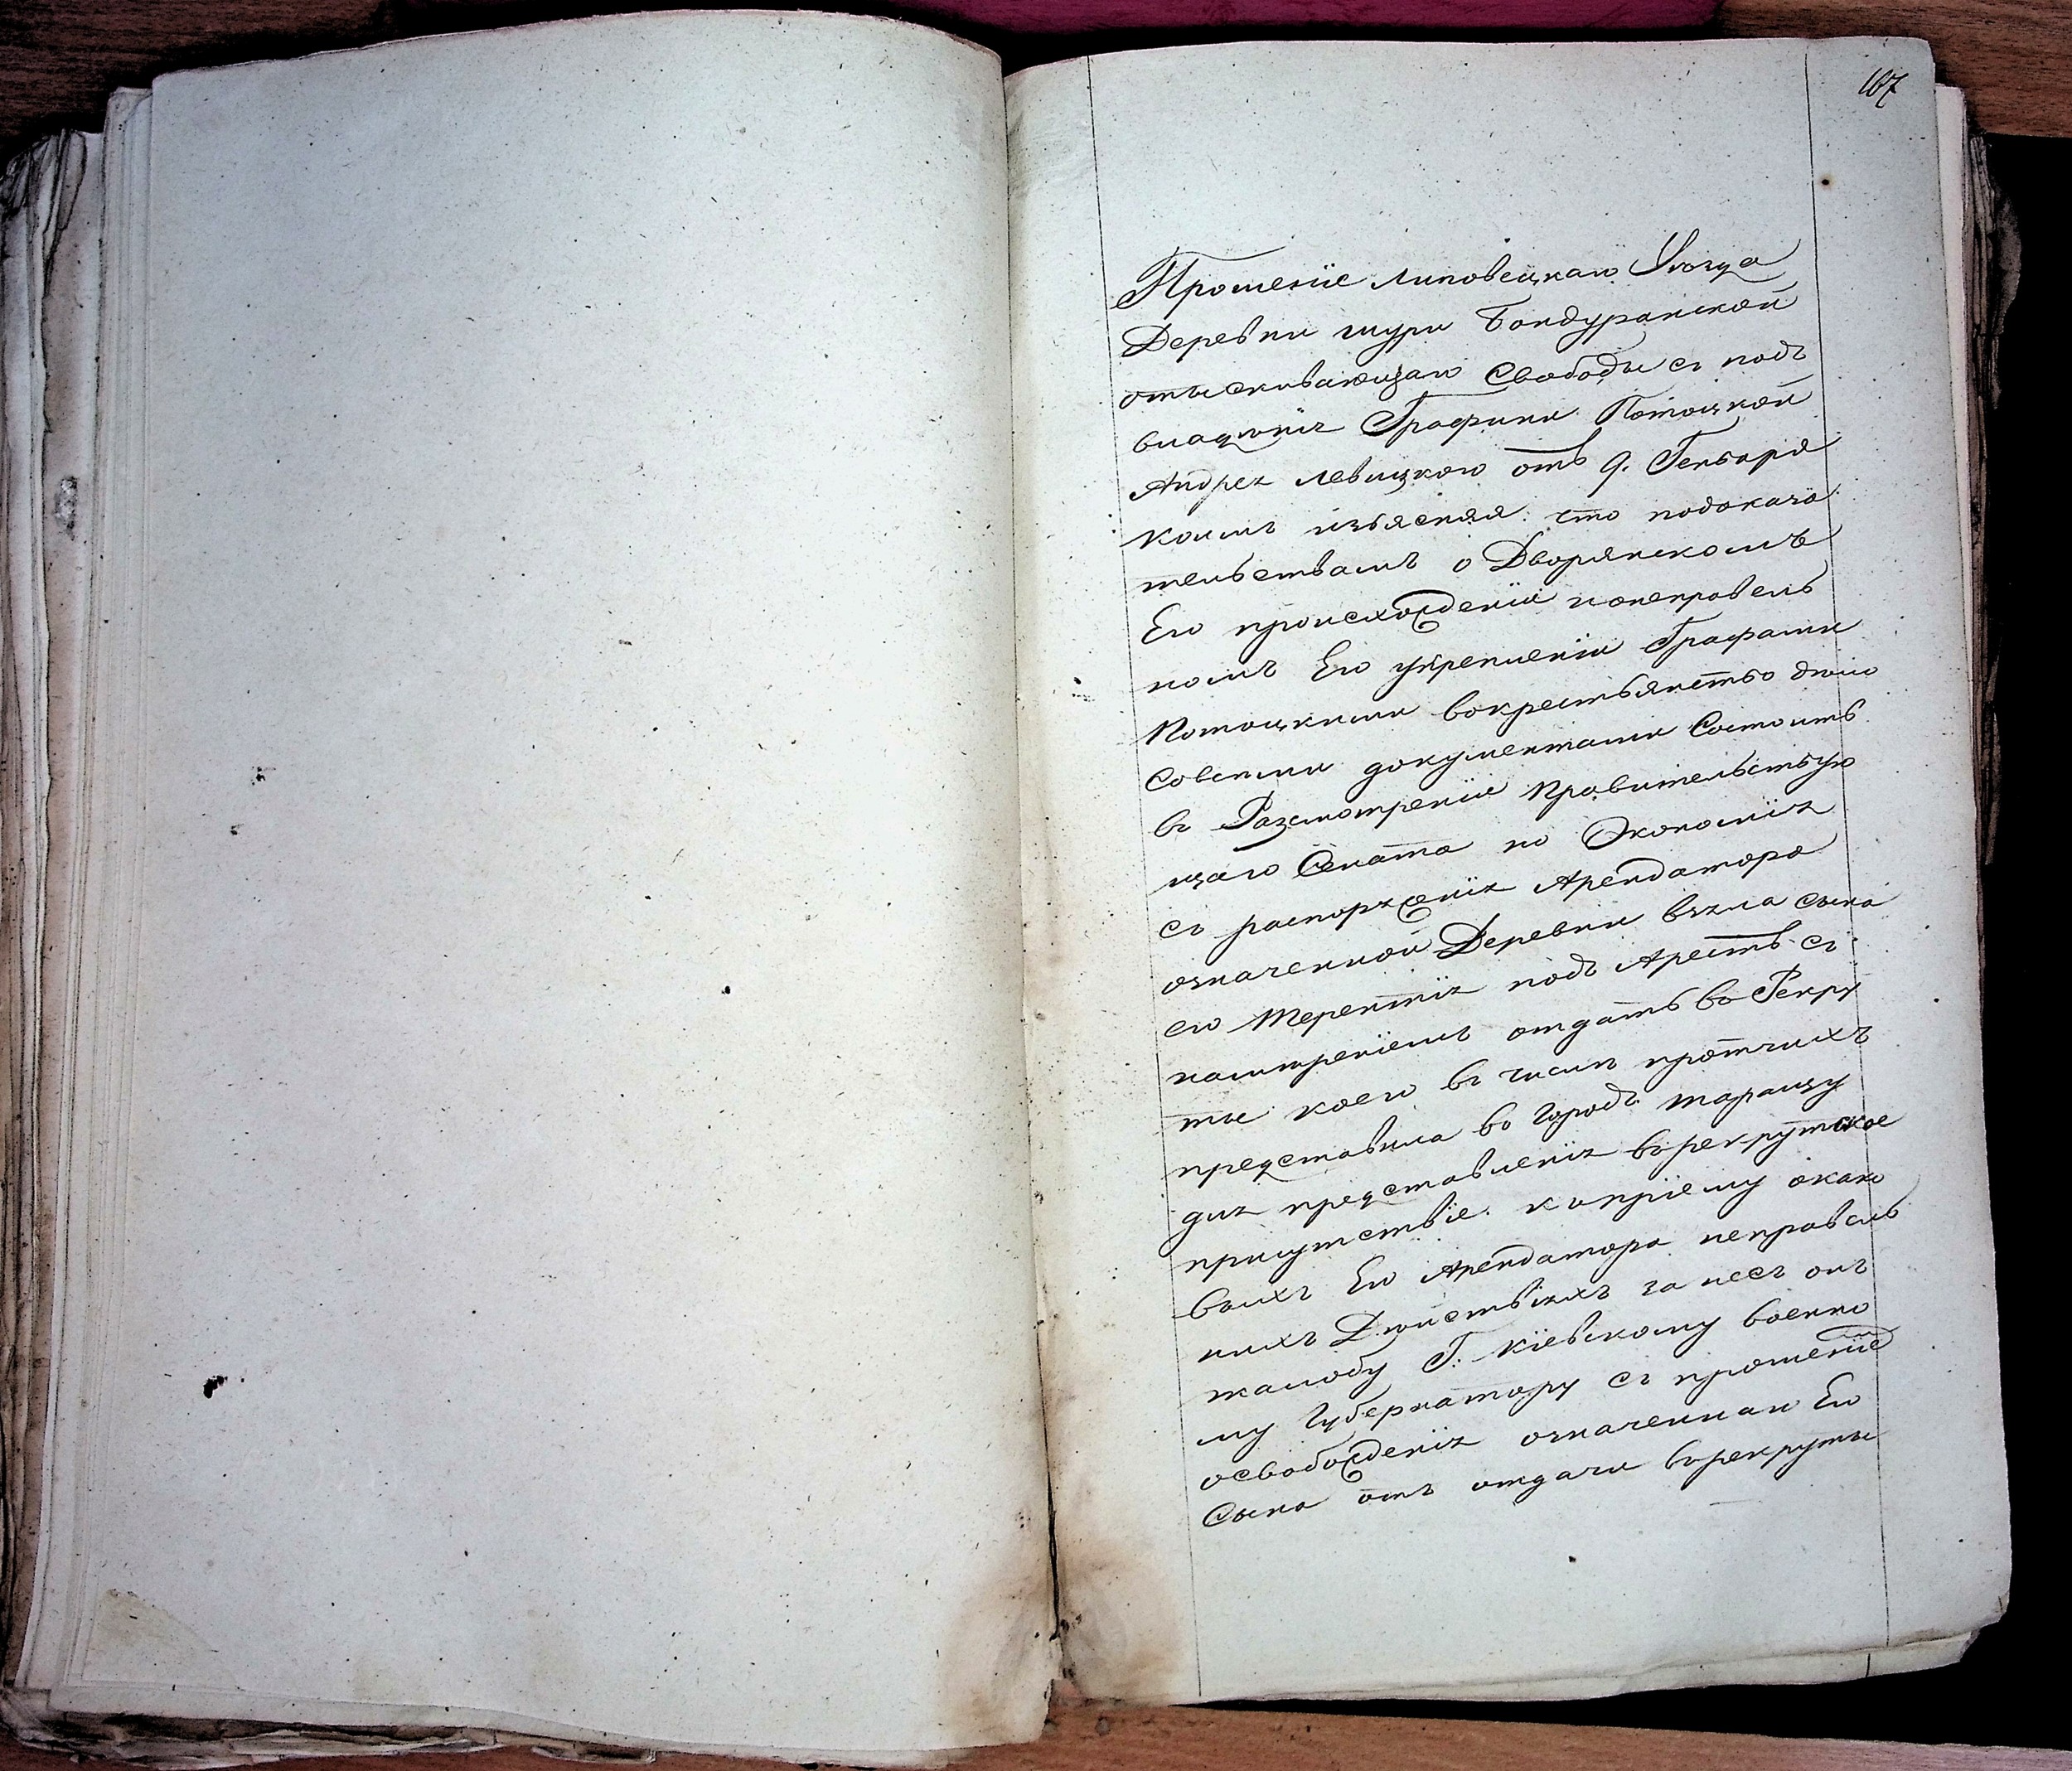 167
Прошеніе липовецкаго Уѣзда
Деревни шури Бондуранской
отыскивающаго Свободы съ подъ
владѣнія Графини Потоцкой
Андрея левицкого отъ 9. Генваря
коимъ изъясняя: что подоказа
тельствамъ о Дворянскомъ
Его происхожденіи и онеправель
номъ Его укрепленіи Графами
Потоцкими вокрестьянство дѣло
Совсѣми документами Состоитъ
въ Разсмотреніи Правительствую
щаго Сената но Экономія
съ распоряженія Арендатора
означенной Деревни взяла сына
его Терентія подъ Арестъ съ
намѣреніемъ отдать во Рекру
ты коего въ числѣ протчихъ
представила во городъ таращу
для представленія врекрутское
присутствіе коприему окако
выхъ Его Арендатора неправель
ныхъ Дѣйствіяхъ занесъ онъ
жалобу Г. кіевскому военно
му Губернатору съ прошеніе
освобожденія означеннаго Его
Сына отъ отдачи врекруты